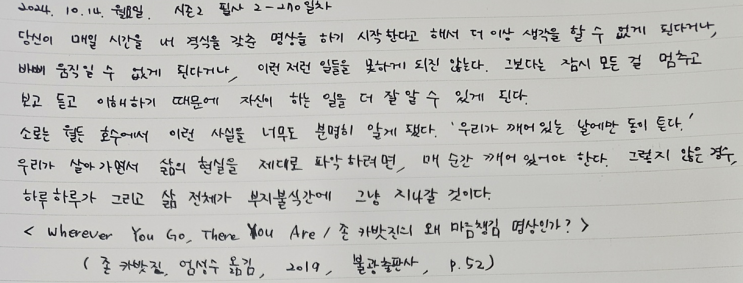 2024. 10. 14. 월요일. 시즌2 필사 2-270일차
당신이 매일 시간을 내 격식을 갖춘 명상을 하기 시작한다고 해서 더 이상 생각을 할 수 없게 된다거나,
바삐 움직일 수 없게 된다거나, 이런 저런 일들을 못하게 되진 않는다. 그보다는 잠시 모든 걸 멈추고
보고 듣고 이해하기 때문에 자신이 하는 일을 더 잘 알 수 있게 된다.
소로는 월든 호수에서 이런 사실을 너무도 분명히 알게 됐다. '우리가 깨어있는 날에만 동이 튼다.'
우리가 살아가면서 삶의 현실을 제대로 파악하려면, 매 순간 깨어 있어야 한다. 그렇지 않은 경우,
하루하루가 그리고 삶 전체가 부지불식간에 그냥 지나갈 것이다.
< Wherever You Go, There You Are / 존 카밧진의 왜 마음챙김 명상인가? >
( 존 카밧진, 엄성수 옮김, 2019, 불광출판사, p.52)